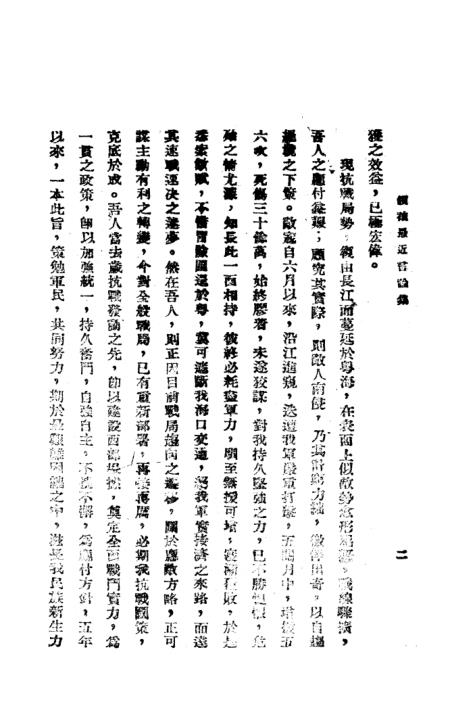 領袖最近言論集
二
獲之效益，已極宏偉。
現抗戰局勢，雖由長江而蔓延於粵海，在表面上似敵勢愈形猖獗，戰線驟擴，
吾人之應付益艱；顧究其實際，則敵人南侵，乃其智窮力絀，以自趨
之下策。敵寇自六月以來，沿江進窺，迭遭我軍嚴重打擊，五閱月中，增援五
六次，死傷三十餘萬，始終膠着，未逞狡謀，對我持久堅強之力，已不勝
殆之情尤深，知長此一西相持，彼終必耗盡軍力，馴至無援可增，於是
悉索敝賦，不惜冒險圖逞於粵，冀可遮斷我海口交通，絕我軍實接濟之來路，而遂
其速戰速決之迷夢。然在吾人，則正因目前戰局趨向之，關於應敵方略，正可
謀主動有利之轉變，今對全般戰局，已有重新部署，再接再厲，必期我抗戰國策，
克底於成。吾人當去歲抗戰發動之先，卽以建設西部，奠定全面戰鬥實力，為
一貫之政策，卽以加強統一，持久奮鬥，自強自主，不撓不屈，為應付方針，五年
以來，一本此旨，策勉軍民，共同努力，期於艱難困難之中，我民族新生力